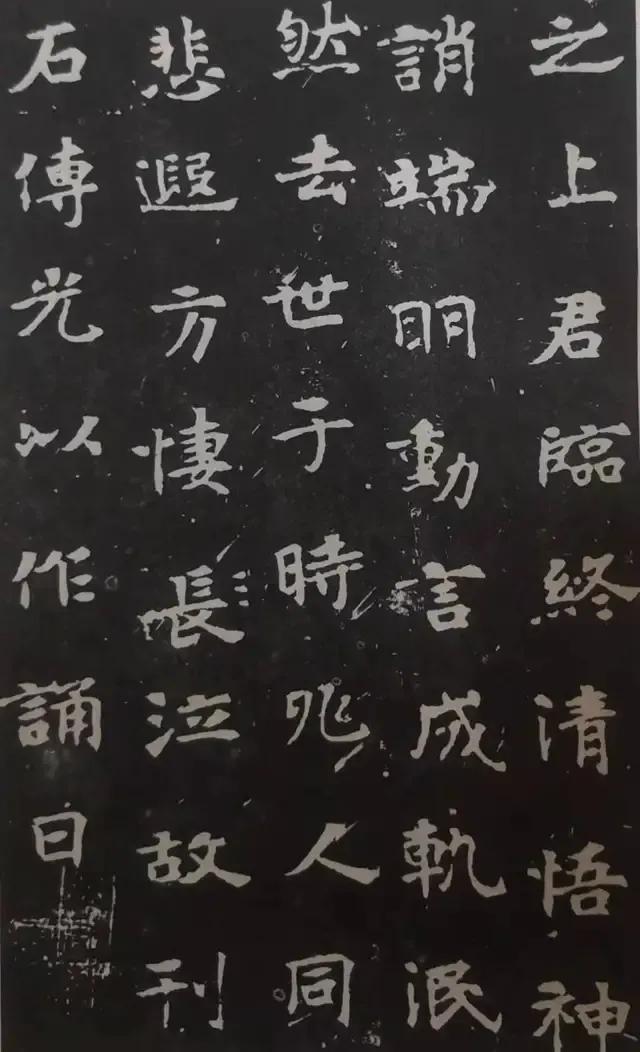 之上君臨終清悟神
誚端眀動言成軌泯
然去世于時兆人同
悲遐方悽長泣故刊
石傅光以作誦曰